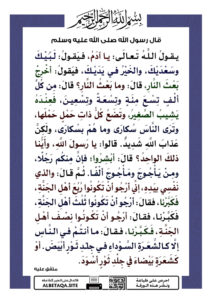 بسم الله الرحمن الرحيم
قال رسول الله صلى الله عليه وسلم
يقولُ اللَّهُ تَعالَى: يا آدَمُ، فيَقولُ: لَبَّيْكَ
وسَعْدَيْكَ، والخَيْرُ في يَدَيْكَ، فيَقولُ: أخْرِجْ
بَعْثَ النَّارِ، قالَ: وما بَعْثُ النَّارِ؟ قالَ: مِن كُلِّ
ألْفٍ تِسْعَ مِئَةٍ وتِسْعَةً وتِسْعِينَ، فَعِنْدَهُ
يَشِيبُ الصَّغِيرُ، وتَضَعُ كُلُّ ذاتِ حَمْلٍ حَمْلَها،
وتَرَى النَّاسَ سُكارَى وما هُمْ بسُكارَى، ولَكِنَّ
عَذابَ اللَّهِ شَدِيدٌ. قالوا: يا رَسولَ اللَّهِ، وأَيُّنا
ذلكَ الواحِدُ؟ قالَ: أبْشِرُوا؛ فإنَّ مِنكُم رَجُلًا،
ومِنْ يَأْجُوجَ ومَأْجُوجَ ألْفًا. ثُمَّ قالَ: والذي
نَفْسِي بيَدِهِ، إنِّي أرْجُو أنْ تَكُونُوا رُبُعَ أهْلِ الجَنَّةِ،
فَكَبَّرْنا، فقالَ: أرْجُو أنْ تَكُونُوا ثُلُثَ أهْلِ الجَنَّةِ،
فَكَبَّرْنا، فقالَ: أرْجُو أنْ تَكُونُوا نِصْفَ أهْلِ
الجَنَّةِ، فَكَبَّرْنا، فقالَ: ما أنتُمْ في النَّاسِ
إلَّا كالشَّعَرَةِ السَّوْداءِ في جِلْدِ ثَوْرٍ أبْيَضَ، أوْ
كَشَعَرَةٍ بَيْضاءَ في جِلْدِ ثَوْرٍ أسْوَدَ.
متفق عليه
احرص على طباعة
ونشر هذه الورقة
ALBETAQA.SITE